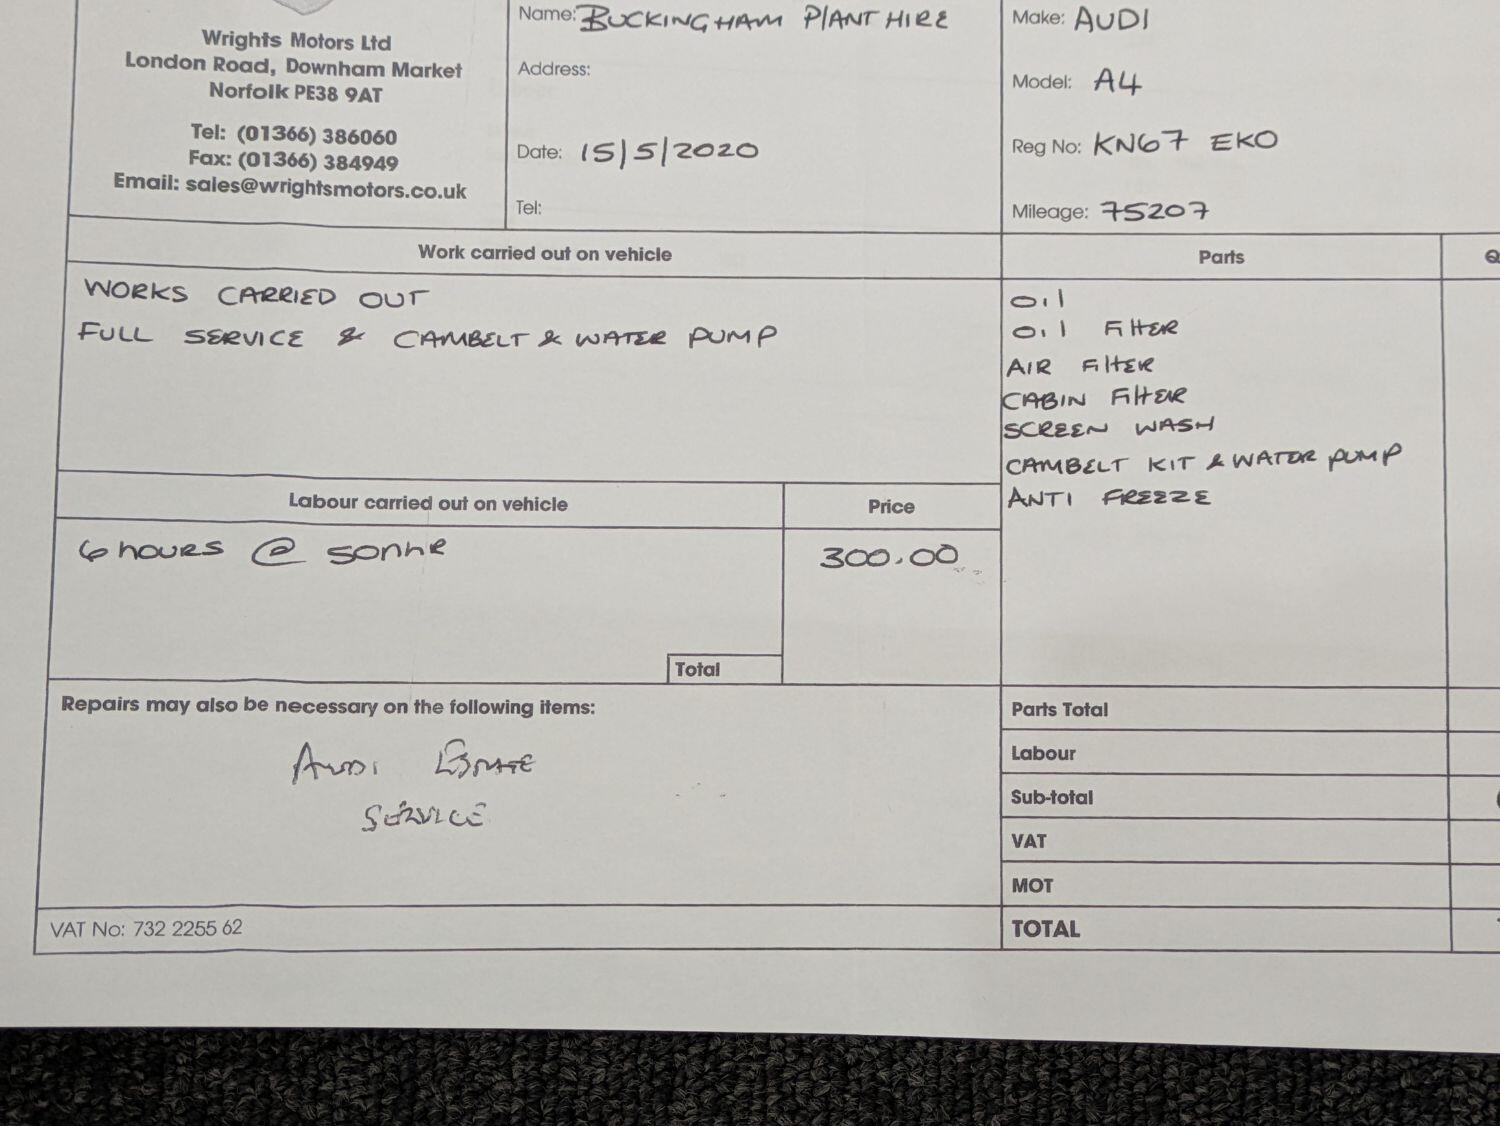 Wrights Motors Ltd
London Road, Downham Market
Norfolk PE38 9AT
Tel: (01366) 386060
Fax: (01366) 384949
Email: sales@wrightsmotors.co.uk
Name: BUCKINGHAM PLANT HIRE
Address:
Date: 15/5/2020
Tel:
Make: AUDI
Model: A4
Reg No: KN67 EKO
Mileage: 75207
Work carried out on vehicle
WORKS CARRIED OUT
FULL SERVICE & CAMBELT & WATER PUMP
Labour carried out on vehicle
Price
6 HOURS @ 50NHR
300.00
Total
Parts
OIL
OIL FILTER
AIR FILTER
CABIN FILTER
SCREEN WASH
CAMBELT KIT & WATER PUMP
ANTI FREEZE
Repairs may also be necessary on the following items:
AUDI ESTATE
SERVICE
Parts Total
Labour
Sub-total
VAT
MOT
TOTAL
VAT No: 732 2255 62